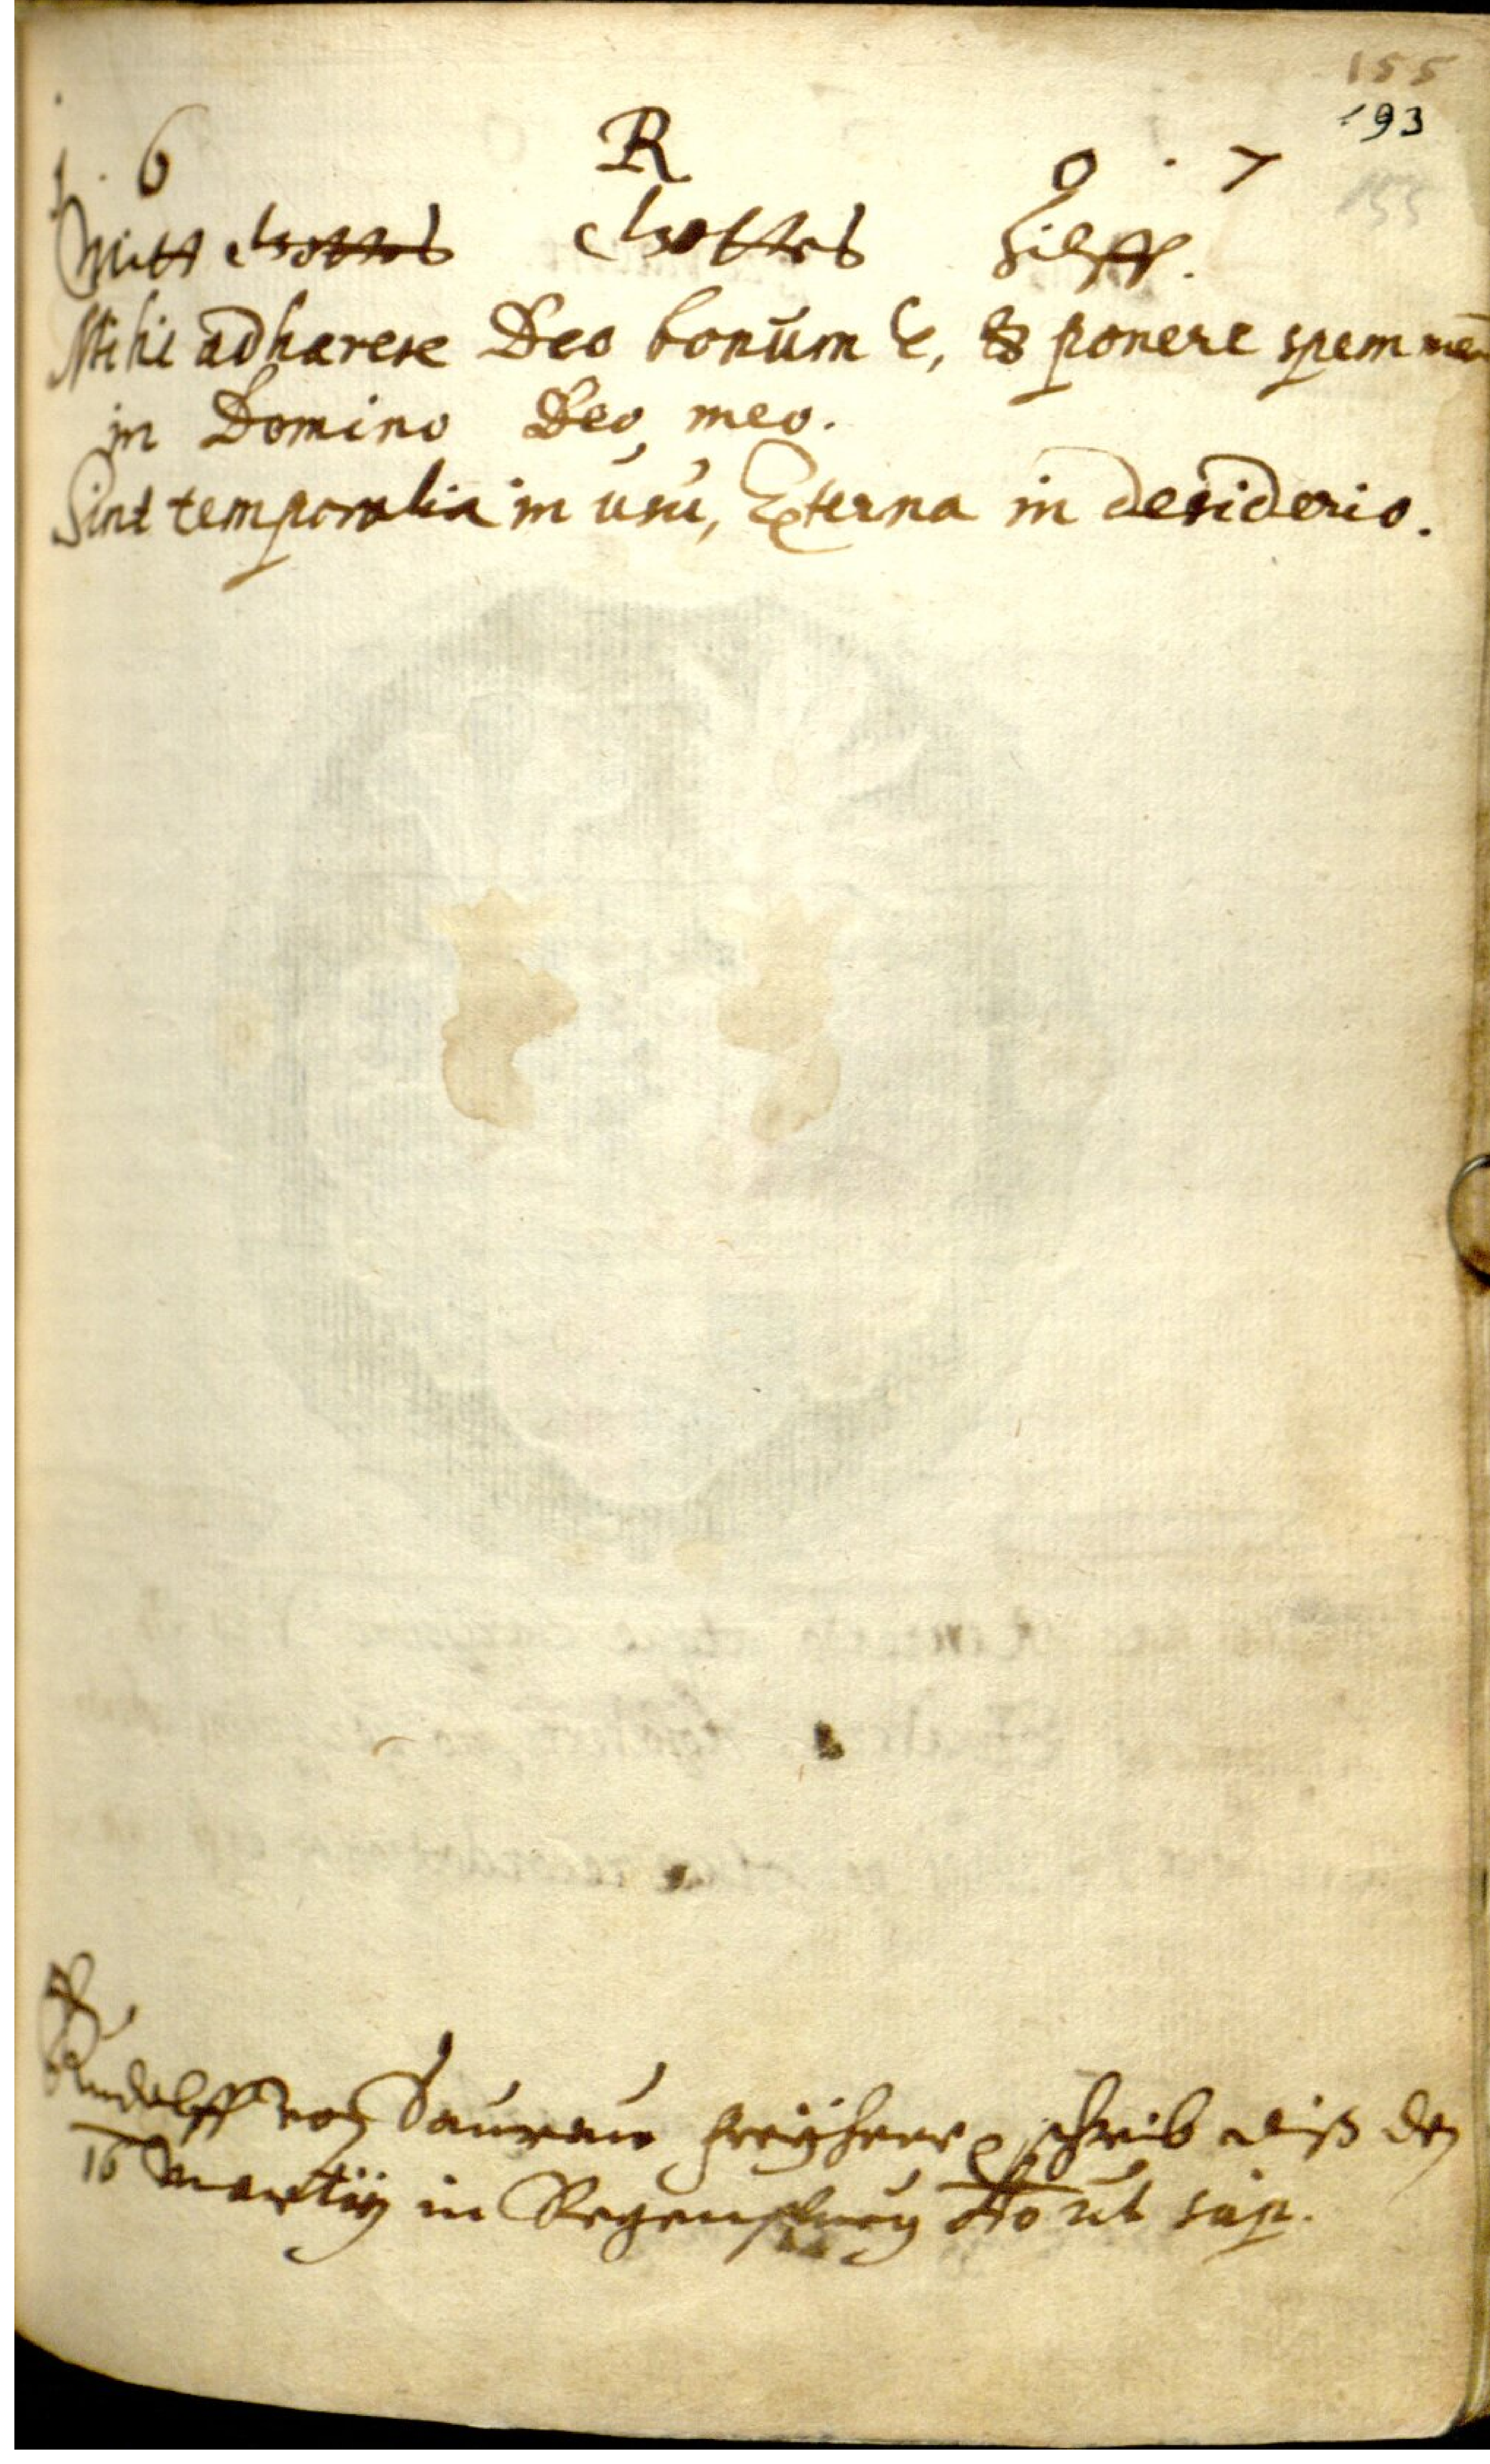 155
193
1 · 6 R 0 · 7
155
Mitt Gottes Gottes Hilff.
Mihi adhærere Deo bonum e, & ponere spem meā
in Domino Deo meo.
Sint temporalia in usu, Æterna in desiderio.
Rudolff von Saurau freÿherr schrib diß den
16 Martij in Regenspurg Ao ut sup.